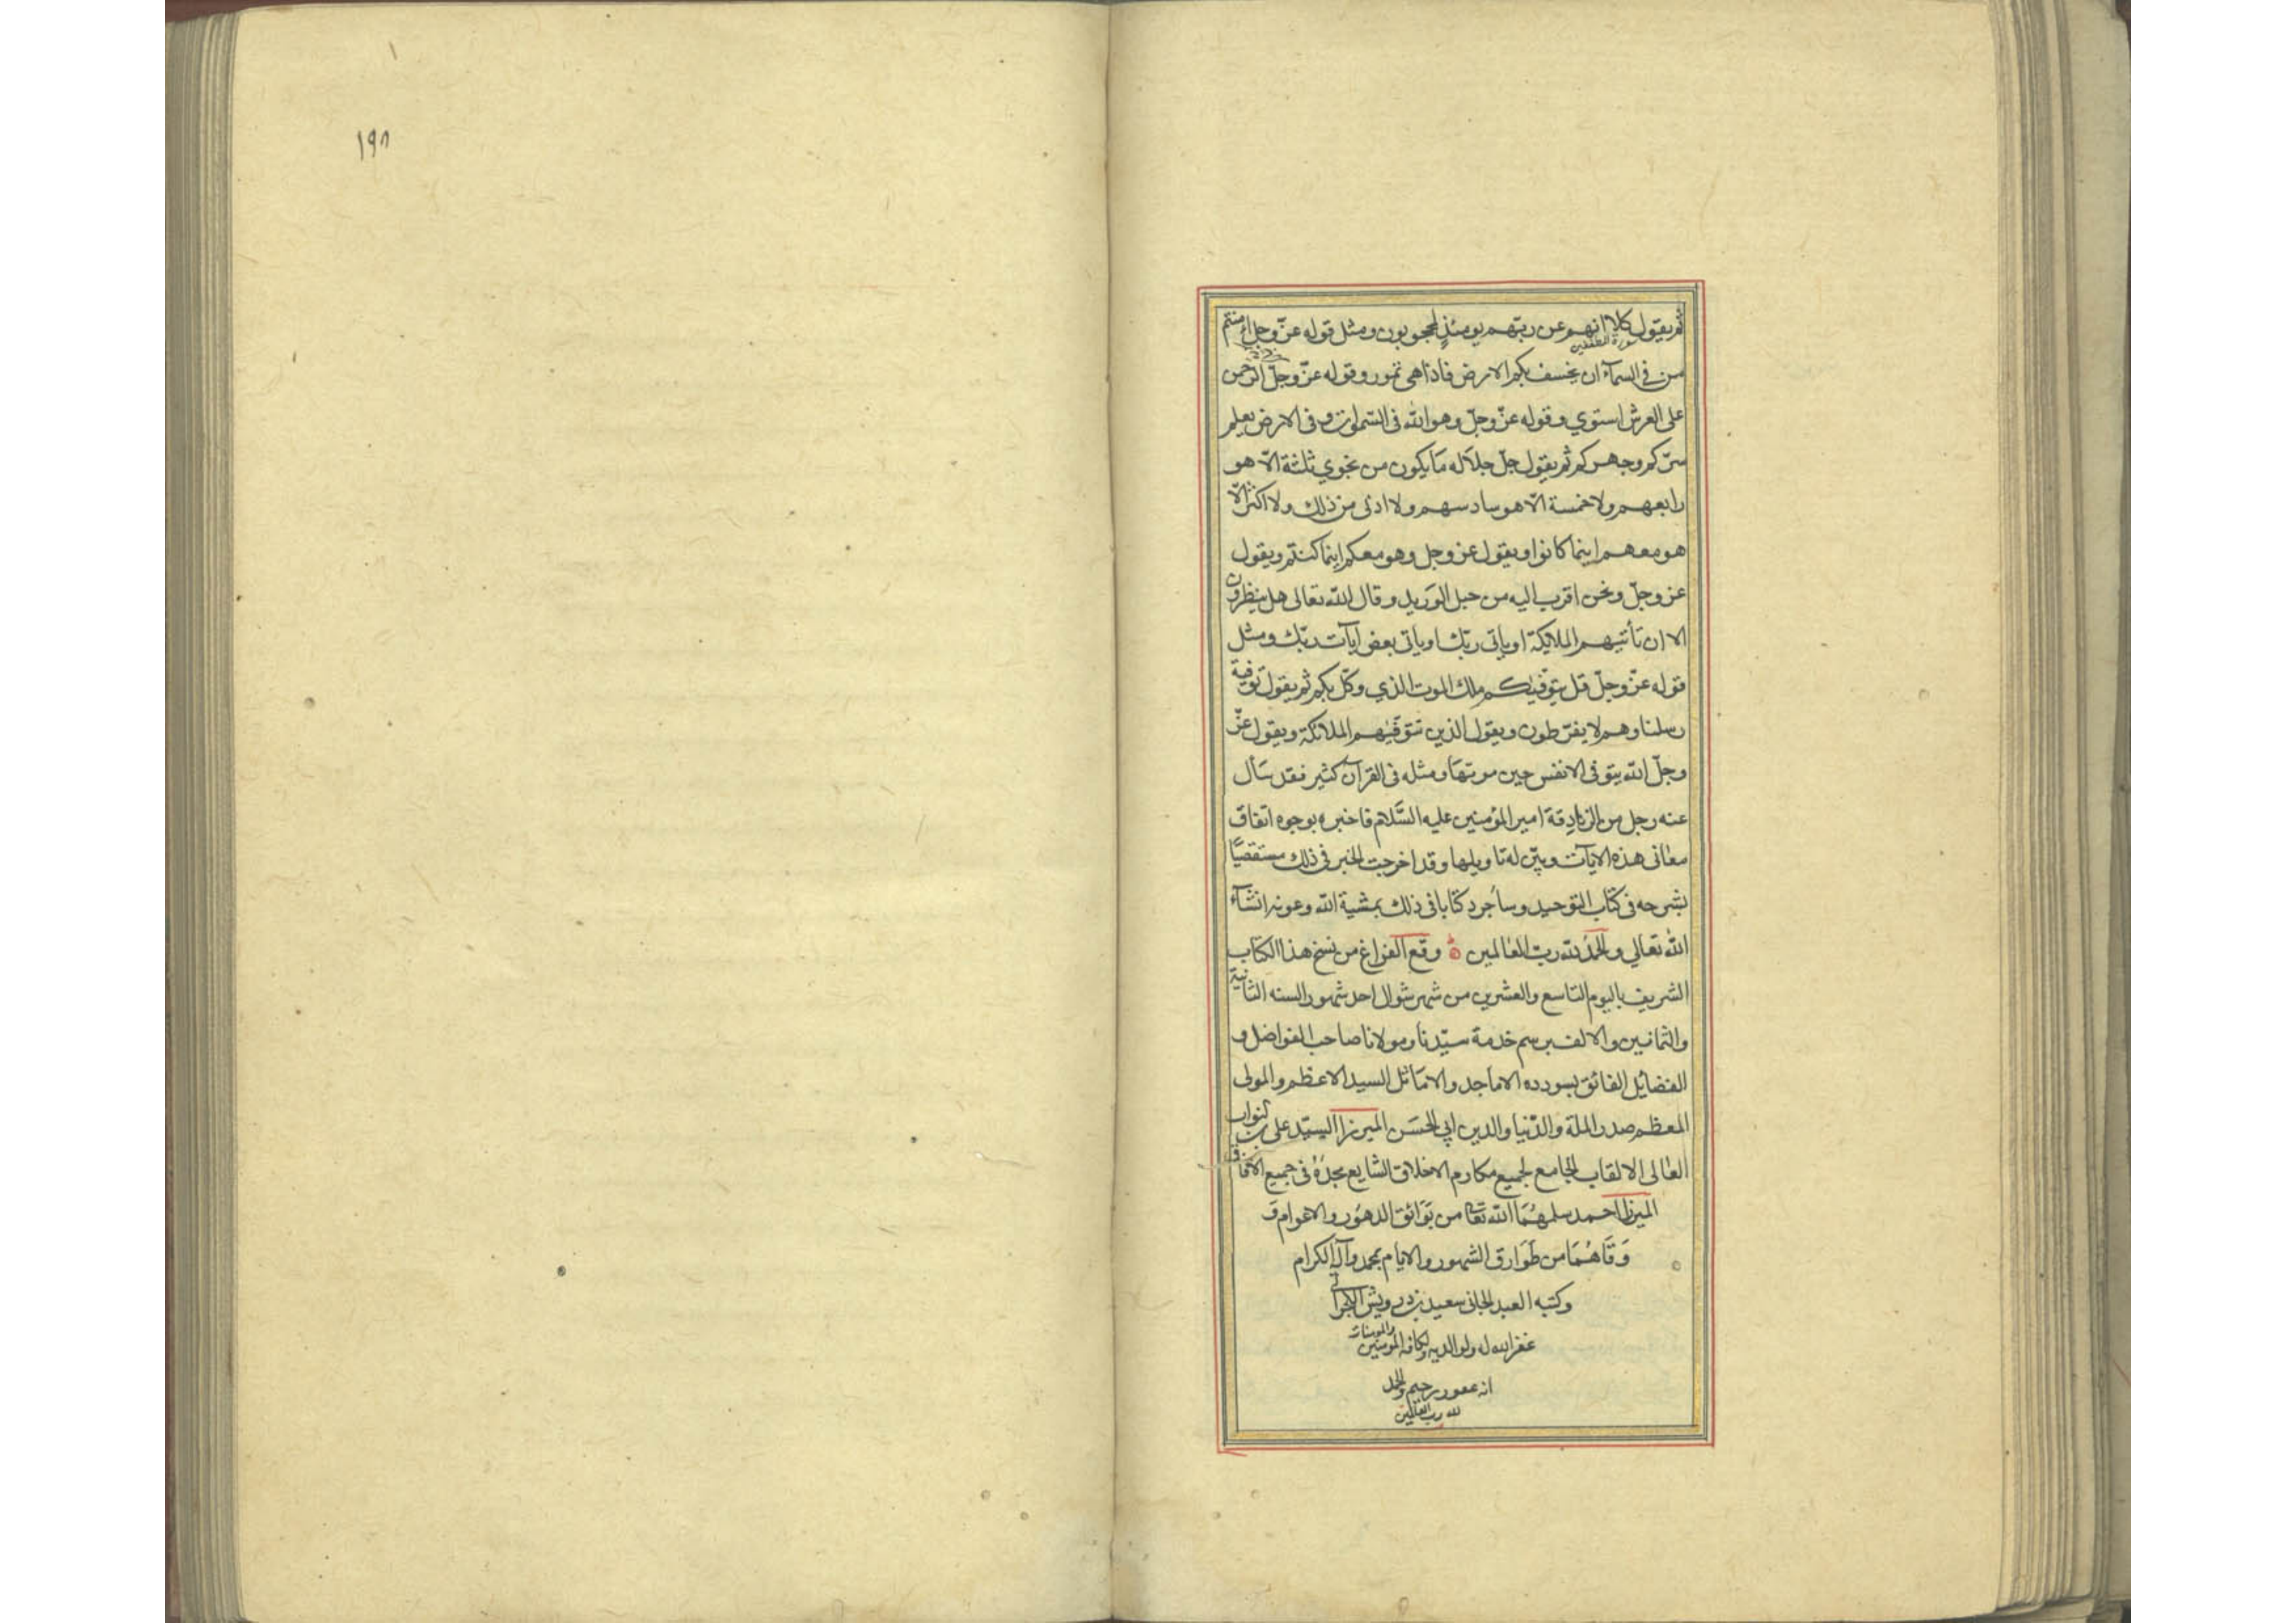 ثم يقول كلا انهم عن ربهم يومئذ لمحجوبون ومثل قوله عزّ وجل أمنتم
سورة المطففين
من في السمآء ان يخسف بكم الارض فاذا هي تمور وقوله عزّ وجلّ الرحمن
على العرش استوي وقوله عزّ وجلّ وهو الله في السّموات وفي الارض يعلم
سرّكم وجهركم ثم يقول جلّ جلاله ما يكون من نجوي ثلثة الّا هو
رابعهم ولا خمسة الّا هو سادسهم ولا ادنى من ذلك ولا اكثر الّا
هو معهم اينما كانوا ويقول عز وجل وهو معكم اينما كنتم ويقول
عز وجلّ ونحن اقرب اليه من حبل الوريد وقال الله تعالى هل ينظرون
الا ان تأتيهم الملايكة او يأتى ربّك او ياتى بعض ايآت ربّك ومثل
قوله عزّ وجلّ قل يتوفّيكم ملك الموت الذي وكّل بكم ثم يقول توفته
رسلنا وهم لا يفرّطون ويقول الذين تتوفّيهم الملائكة ويقول عزّ
وجلّ الله يتوفى الانفس حين موتها ومثله في القرآن كثير فقد سأل
عنه رجل من الزنادقة امير المؤمنين عليه السّلام فاخبره بوجوه اتفاق
معانى هذه الايآت وبيّن له تاويلها وقد اخرجت الخبر في ذلك مستقصيًا
بشرحه في كتاب التوحيد وسأجرد كتابا في ذلك بمشية الله وعونه انشآء
الله تعالي والحمد لله ربّ العالمين وقع الفراغ من نسخ هذا الكتاب
الشريف باليوم التاسع والعشرين من شهر شوال احد شهور السنه الثانية
والثمانين والالف برسم خدمة سيّدنا ومولانا صاحب الفواضل و
الفضايل الفائق بسودده الاماجد والاماثل السيد الاعظم والمولى
المعظم صدر الملة والدّنيا والدين ابي الحسن الميرزا السيّد على بن النواب
العالى الالقاب الجامع لجميع مكارم الاخلاق الشايع مجده في جميع الآفاق
الميرزا احمد سلمهما الله تعالى من بوائق الدهور والاعوام و
وقاهما من طوارق الشهور والايام بمحمد وآله الكرام
وكتبه العبد الجانى سعيد بن درويش
غفر الله له ولوالديه ولكافة المومنين والمومنات
انه غفور رحيم والحمد
لله رب العالمين
١٩٨